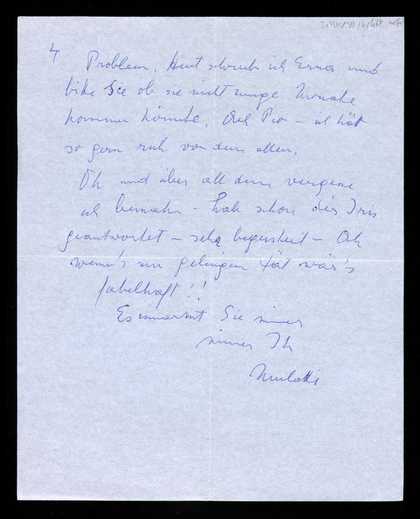 4
Problem. Heut schrieb ich Erna und
bitte Sie ob sie nicht einige Monate
kommen könnte. Auf Pro – ich hät
so gern ruh von dem allen.
Oh und über all dem vergesse
ich beinahe – hab schon dir Iris
geantwortet – sehr begeistert – Oh
wenn's nur gelingen tät wär's
fabelhaft!!
Es umarmt Sie immer
immer Ih